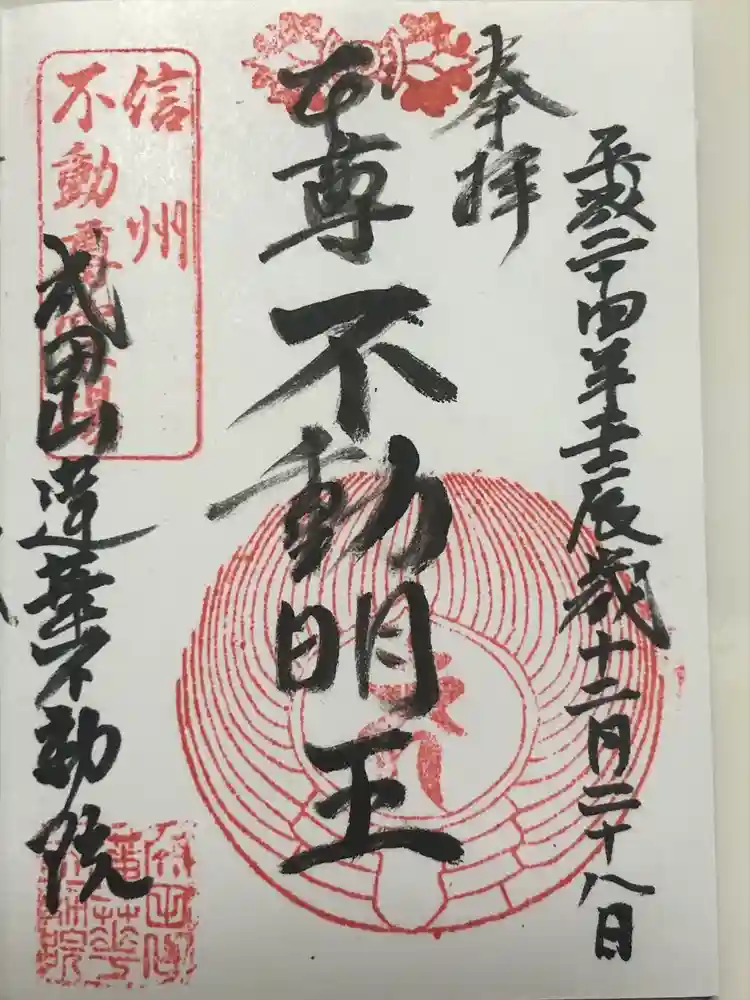 平成二十四年壬辰歳十二月二十八日
奉拝
本尊不動明王
信州
不動尊霊場
成田山蓮華不動院